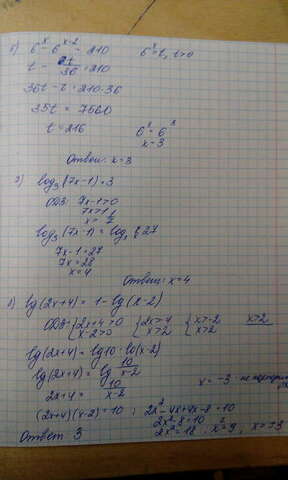 1) 6^x - 6^(x-2) = 210    6^x = t, t>0
t - t/36 = 210
36t - t = 210·36
35t = 7560
t = 216    6^x = 6^3
x = 3
Ответ: x=3
2) log₃(7x-1)=3
ОДЗ: 7x-1>0
7x>1
x>1/7
log₃(7x-1) = log₃ 27
7x-1=27
7x=28
x=4
Ответ: x=4
lg(2x+4) = 1-lg(x-2)
ОДЗ: {2x+4>0 {2x>-4 {x>-2 x>2
x-2>0 x>2 x>2
lg(2x+4) = lg10-lg(x-2)
lg(2x+4) = lg 10/(x-2)    x = -3 - не
2x+4 = 10/(x-2)
(2x+4)(x-2)=10 ; 2x²-4x+4x-8=10
2x²-8=10
2x²=18 ; x²=9 ; x=±3
Ответ 3